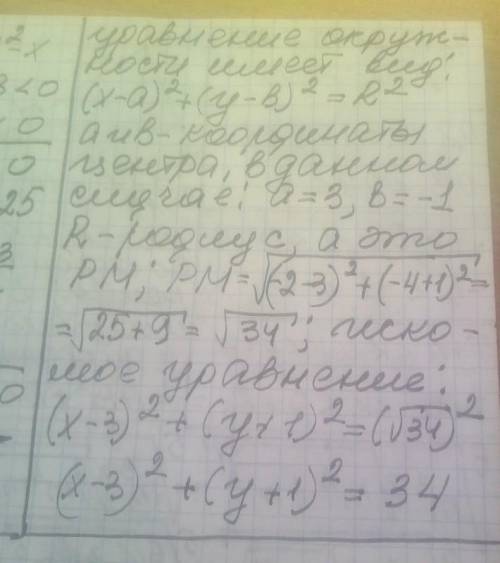 2 x
3<0
0
0
25
3
0
уравнение окруж-
ности имеет вид:
(x-a)²+(y-в)²=R²
a и в - координаты
центра, в данном
случае: a=3, в=-1
R-радиус, а это
PM; PM=√(-2-3)²+(-4+1)²=
=√25+9=√34; иско-
мое уравнение:
(x-3)²+(y+1)²=(√34)²
(x-3)²+(y+1)²=34